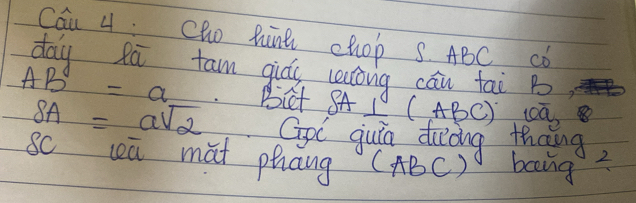 Câu 4: Cho hình chóp S.ABC có
đáy là tam giác vuông cân tại B,
AB = a. Biết SA ⊥ (ABC) và
SA = a√2. Góc giữa đường thẳng
SC và mặt phẳng (ABC) bằng?